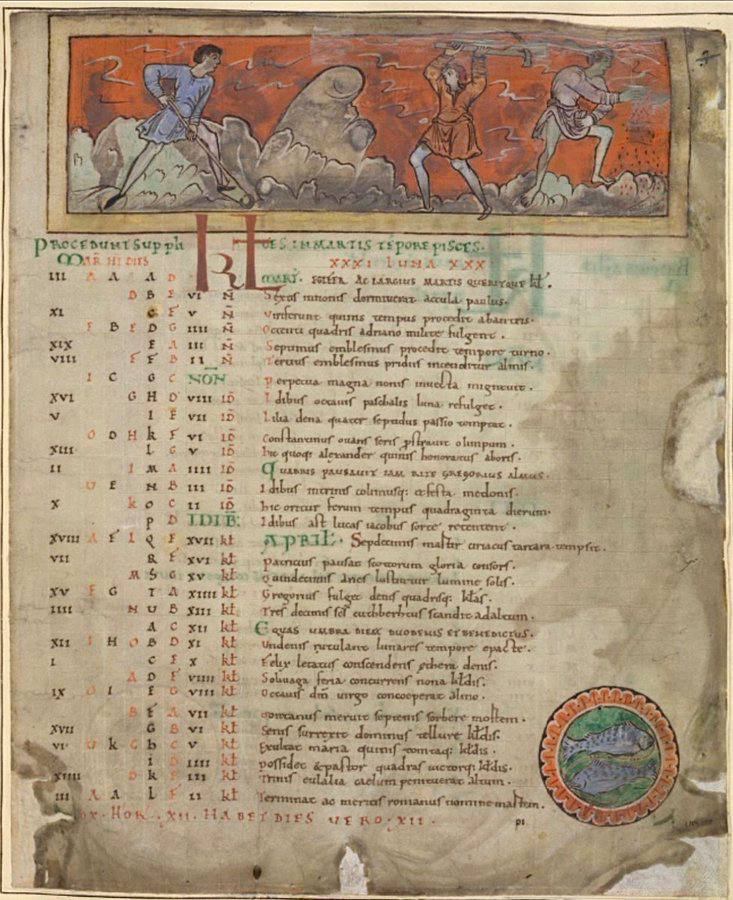 PROCEDUNT SUP PLI KL ES IN MARTIS TEPORE PISCES.
MAR HI DIES XXXI LUNA XXX
III A A A D MARCI. AC LARGIUS MARTIS
D B E VI N Sextis nitionis accula paulus.
XI C F V N quinis tempus procedit
F B E D G IIII N Occurit quadris adriano milite fulgent.
XIX E A III N Septimus emblesinus procedit tempore turno.
VIII F F B II N Tertius emblesinus pridius incenditur almis.
I C G C NON perpetua magna nonis invecta
XVI G H D VIII ID Idibus octavis paschalis luna refulget.
V I E VII ID Lilia dena quater passio temptat.
O D H K F VI ID Constantinus ovans seris pstravit olimpum.
XIII L G V ID hic quoq; alexander quinis honoratus aboris.
II I M A IIII ID QUADRIS PAUSAVIT IAM RITE GREGORIUS ALMUS.
U E N B III ID Idibus in trinis colimusq; et festa
X K O C II ID hic oritur ferum tempus quadraginta dierum.
P D IDIB: Idibus ast lucas iacobus sorte
XVIII A F L Q E XVII kl APRIL. Septdecimis martir ciriacus tartara tempsit.
VII R F XVI kl Patricius pausat scottorum gloria consors.
M S G XV kl Quindecimis aries lustratur lumine solis.
XV F G T A XIIII kl Gregorius fulget denis quadrisq; klas.
IIII N U B XIII kl Tres decimis sci cuthberhtus scandit ad altum.
A C XII kl EQUAS UMBRA DIEM DUODENIS ET BENEDICTUS.
XII I H O B D XI kl Undenis rutulant lunares tempore epacte.
I C E X kl Felix letatus conscendens ethera denis.
A D F VIIII kl Solivaga feria concurrens nona kldis.
IX O I E G VIII kl Octavis dni virgo almo.
B F A VII kl meruit septenis sorbere mortem.
XVII G B VI kl Senis surrexit dominus tellure kldis.
VI U K G h C V kl Exultat maria quinis kldis.
I D IIII kl possidet & pastor quadras kldis.
XIIII D K E III kl Trinis eulalia caelum penitverat altum.
III A A L F II kl Terminat ac romanus nomine martem.
OX. HOR. XII. HABET DIES VERO. XII.